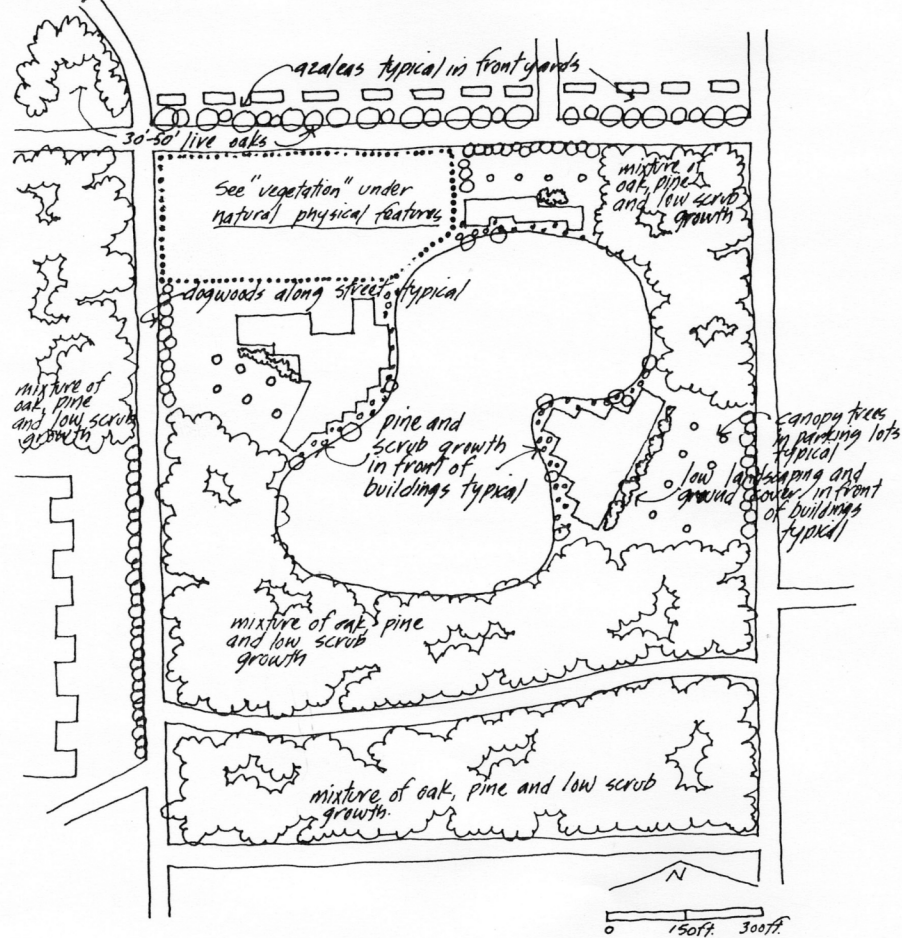 azaleas typical in front yards
30'-50' live oaks
See "vegetation" under
natural physical features
mixture of
oak, pine
and low scrub
growth
dogwoods along street typical
mixture of
oak, pine
and low scrub
growth
pine and
scrub growth
in front of
buildings typical
canopy trees
in parking lots
typical
low landscaping and
ground cover in front
of buildings
typical
mixture of oak, pine
and low scrub
growth
mixture of oak, pine and low scrub
growth.
N
0 150ft. 300ft.